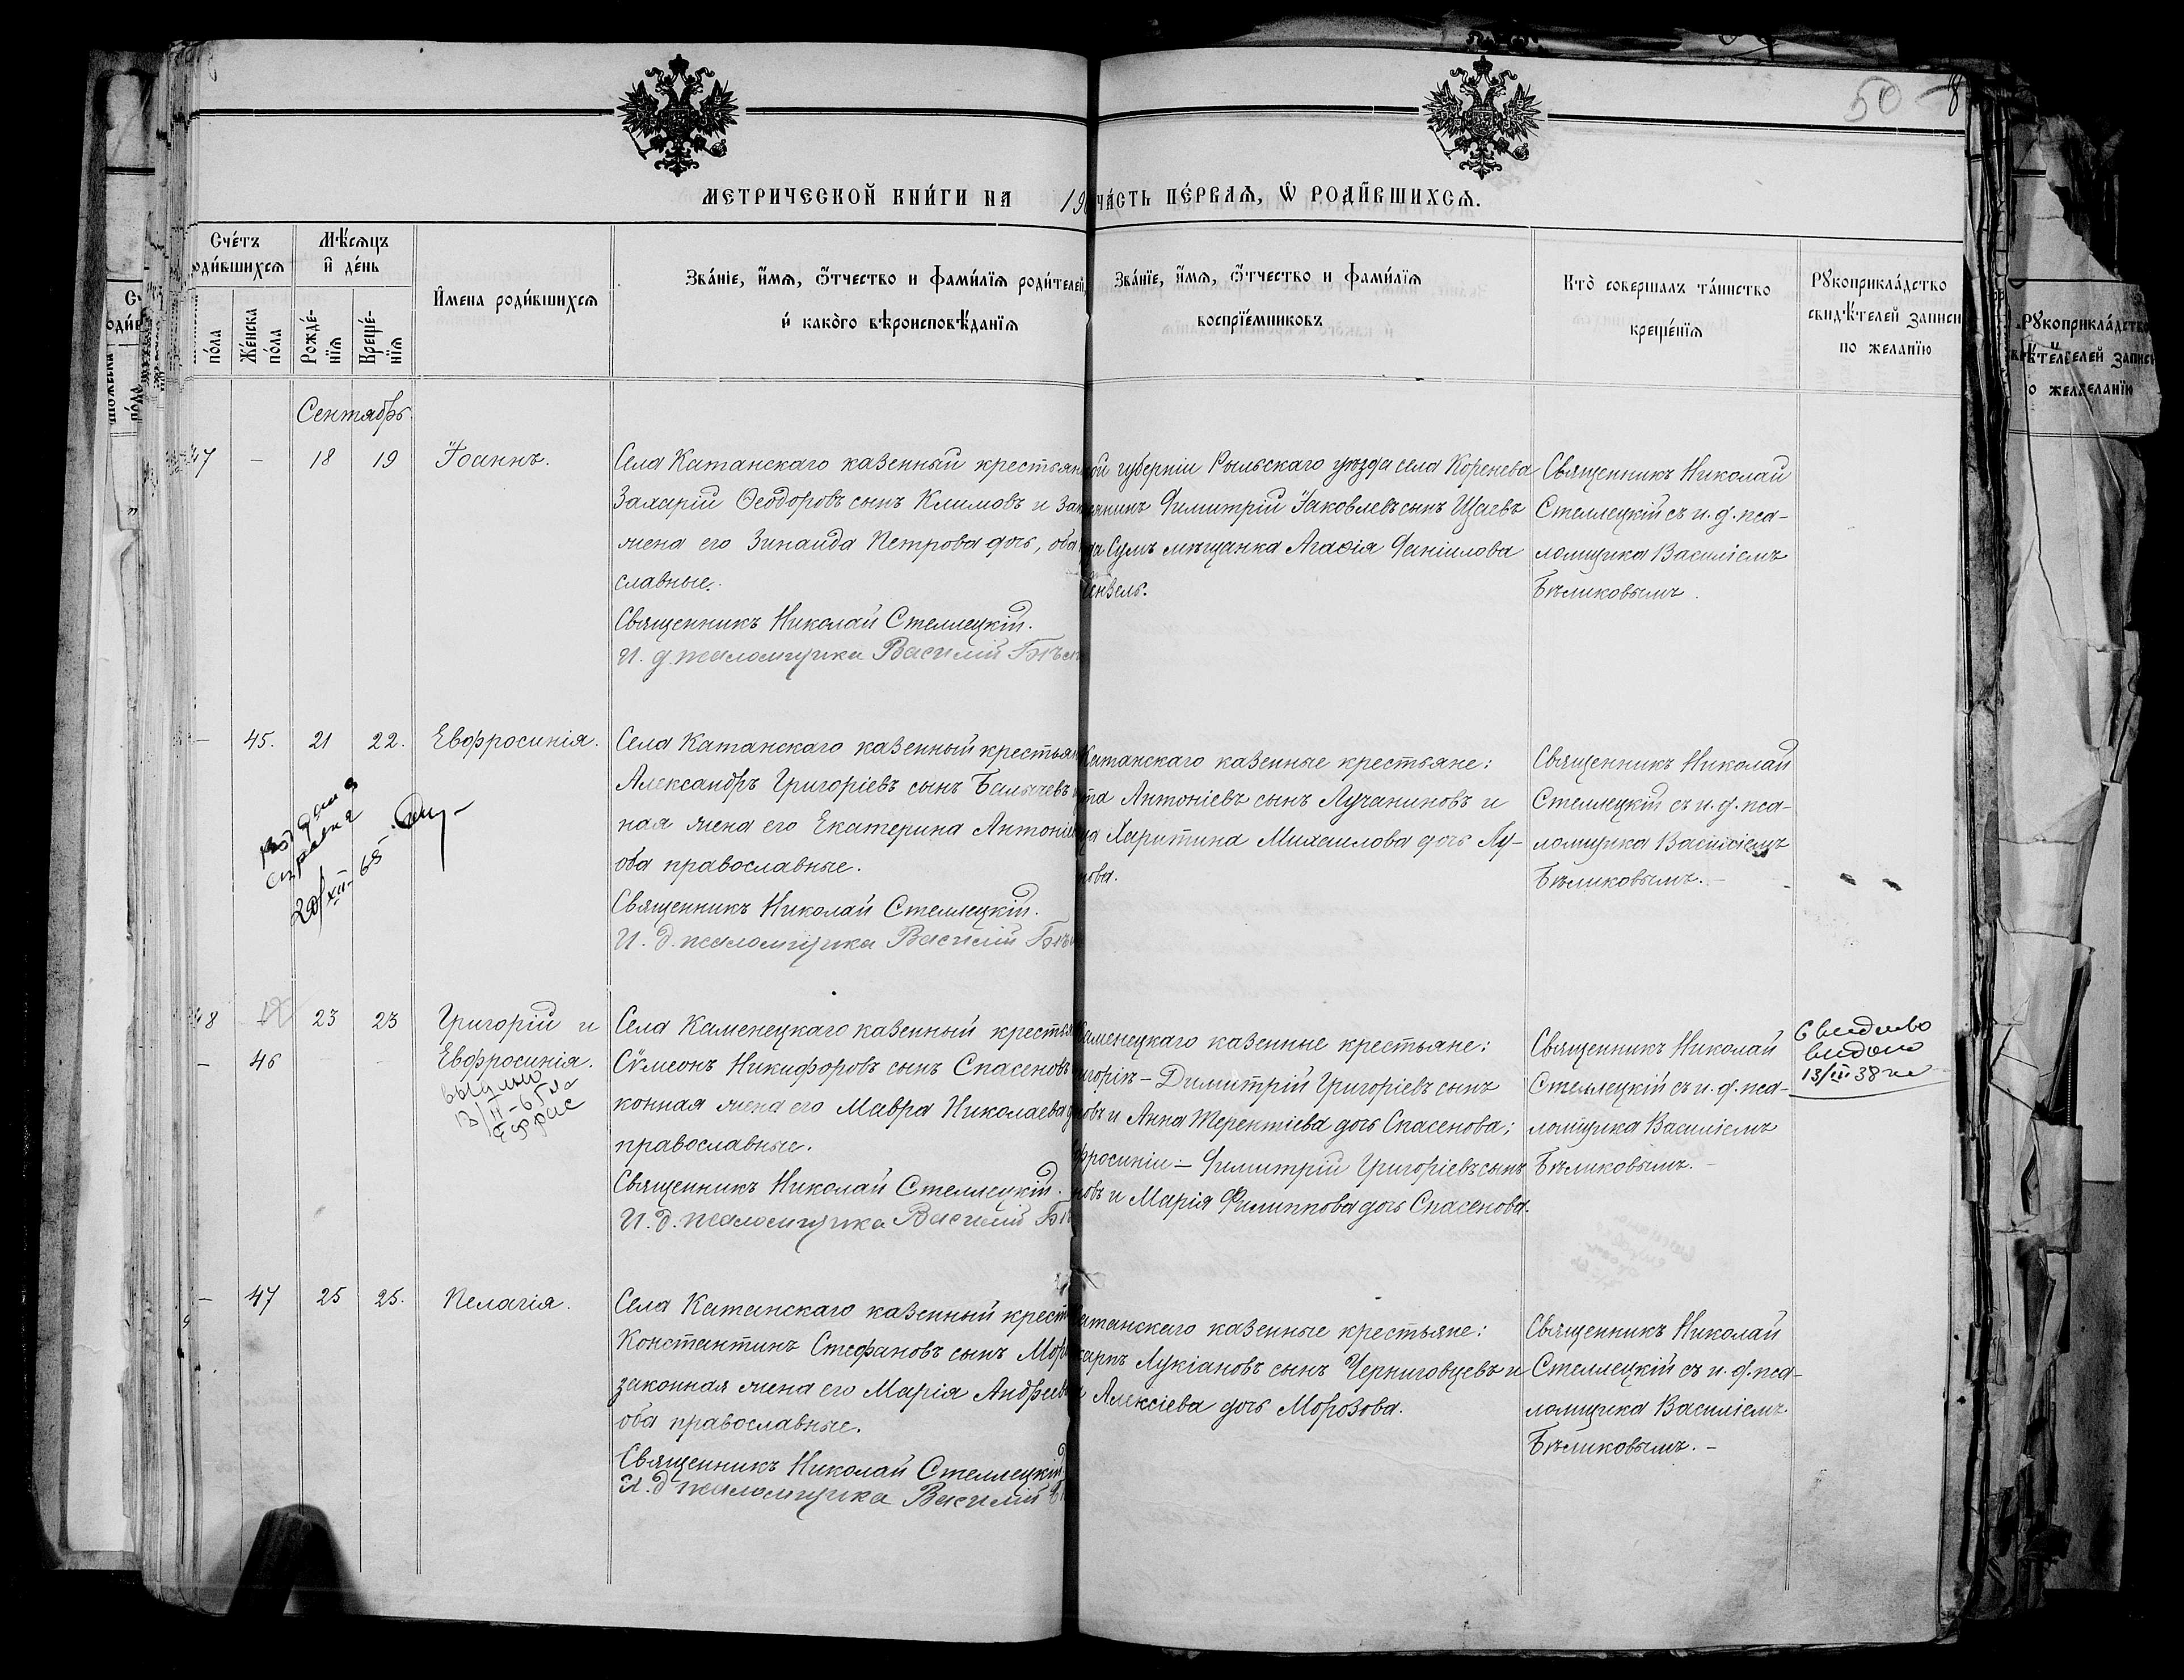 50
МЕТРИЧЕСКОЙ КНИ́ГИ НА 19
ЧА́СТЬ ПЕ́РВАѦ, Ѡ РОДИ́ВШИХСѦ.
Сче́тъ
роди́вшихсѧ
Мѣ́сѧцъ
и҆ де́нь
по́ла
Же́нска
по́ла
Рожде́-
нїѧ
Креще́-
нїѧ
И҆мена роди́вшихсѧ
Зва́нїе, и҆́мѧ, ѻ҆́тчество и фами́лїѧ роди́телей,
и҆ како́го вѣроисповѣ́данїѧ
Зва́нїе, и҆́мѧ, ѻ҆́тчество и фами́лїѧ
воспрїе́мниковъ
Кто̀ соверша́лъ та́инство
креще́нїѧ
Рꙋкоприкла́дство
свидѣ́телей записи
по желанїю
Сентябрь.
47 — 18 19 Іоаннъ.
Села Катанскаго казенный крестьян
Захарій Ѳеодоровъ сынъ Климовъ и за
жена его Зинаида Петрова дочь, оба
славные.
Священникъ Николай Стеллецкій.
И. д. псаломщика Василій Бѣл
ой губерніи Рыльскаго уѣзда села Коренева
янинъ Димитрій Іаковлевъ сынъ Щаевъ
да Сумъ мѣщанка Агаѳія Даніилова
Священникъ Николай
Стеллецкій съ и. д. пса-
ломщика Василіемъ
Бѣликовымъ.
— 45. 21 22. Евфросинія.
20/XII-65
Села Катанскаго казенный крестьян
Александръ Григоріевъ сынъ Балычевъ
ная жена его Екатерина Антоніе
оба православные.
Священникъ Николай Стеллецкій.
И. д. псаломщика Василій Бѣ
Катанскаго казенные крестьяне:
та Антоніевъ сынъ Лучаниновъ и
ца Харитина Михаилова дочь Лу-
нова.
Священникъ Николай
Стеллецкій съ и. д. пса-
ломщика Василіемъ
Бѣликовымъ. —
48 23 23 Григорій и
— 46 Евфросинія.
Села Каменецкаго казенный крестья
Сѵмеонъ Никифоровъ сынъ Спасеновъ
конная жена его Мавра Николаева д
православные.
Священникъ Николай Стеллецкій.
И. д. псаломщика Василій Бѣ
Каменецкаго казенные крестьяне:
игорія — Димитрій Григоріевъ сынъ
новъ и Анна Терентіева дочь Спасенова;
фросиніи — Димитрій Григоріевъ сынъ
новъ и Марія Филиппова дочь Спасенова.
Священникъ Николай
Стеллецкій съ и. д. пса-
ломщика Василіемъ
Бѣликовымъ. —
13/III 38
— 47 25 25. Пелагія.
Села Катанскаго казенный крест
Константинъ Стефановъ сынъ Мор
законная жена его Марія Андреев
оба православные.
Священникъ Николай Стеллецкій
И. д. псаломщика Василій
атанскаго казенные крестьяне:
карпъ Лукіановъ сынъ Черниговцевъ и
Алексіева дочь Морозова.
Священникъ Николай
Стеллецкій съ и. д. пса-
ломщика Василіемъ
Бѣликовымъ. —